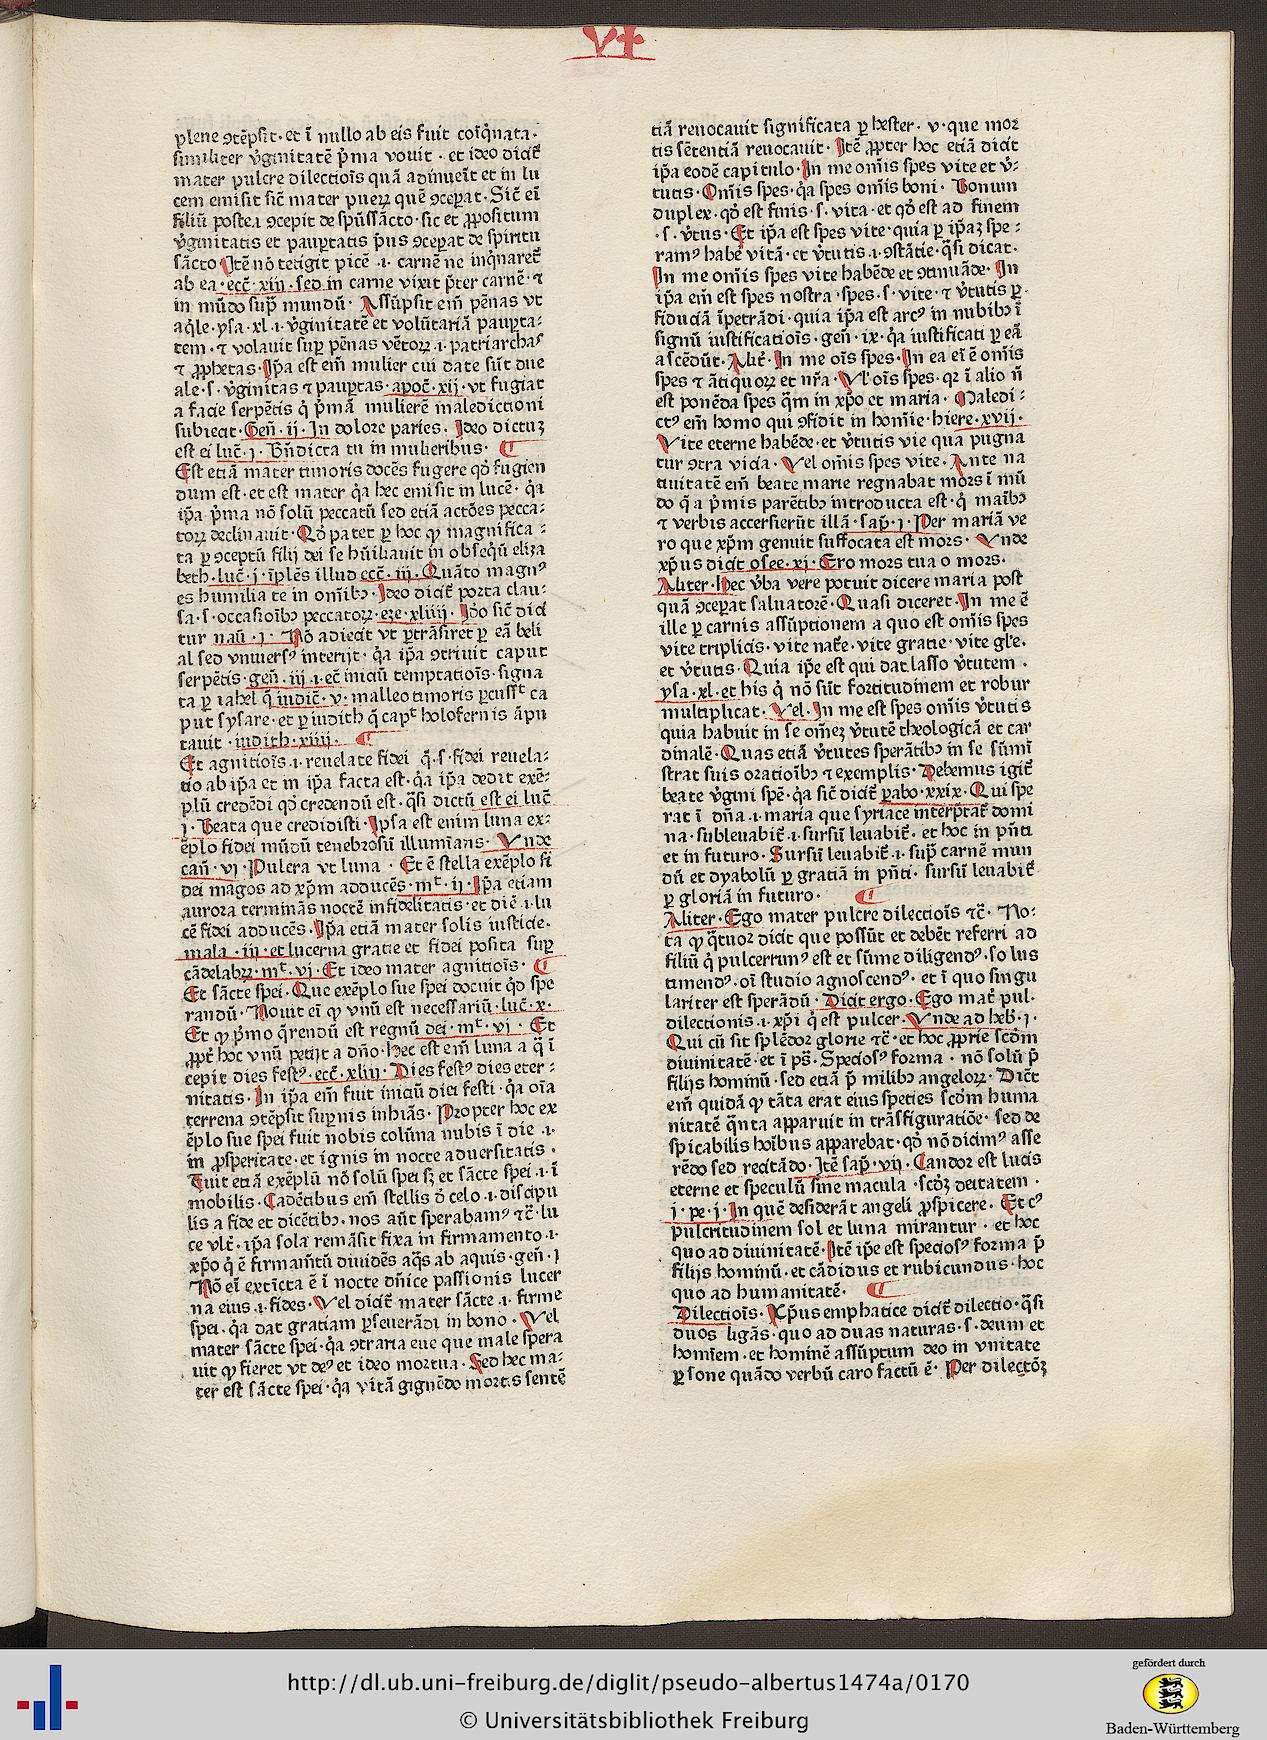 VI
plene ꝯtēpsit· et ī nullo ab eis fuit coīq̇nata·
similiter v̓ginitatē p̓ma vouit · et ideo dicit᷑
mater pulcre dilectiōis quā adinueīt et in lu
cem emisit sic̄ mater pueꝝ quē ꝯceꝑat· Sic̄ eī
filiū postea ꝯcepit de spūssācto· sic et ꝓpositum
v̓ginitatis et pauꝑtatis p̓us ꝯceꝑat de spiritu
sācto Itē nō tetigit picē ·i· carnē ne inq̇naret᷑
ab ea· ecc̄· xiij· sed in carne vixit p̄ter carnē· ⁊
in mūdo sup̄ mundū· Assūpsit em̄ pēnas vt
aq̇le· ysa· xl· i· v̓ginitatē et volūtariā pauꝑta-
tem· ⁊ volauit suꝑ pēnas vētoꝝ ·i· patriarchas
⁊ ꝓphetas· Ip̄a est em̄ mulier cui date sūt due
ale· s· v̓ginitas ⁊ pauꝑtas· apoc̄· xij· vt fugiat
a facie serpētis q̇ p̓mā mulierē maledictioni
subiecit· Gen̄· ij· In dolore paries· Ideo dictuꝫ
est ei luc̄· j· Bn̄dicta tu in mulieribus· ¶
Est etiā mater timoris docēs fugere qḋ fugien
dum est· et est mater q̇a hec emisit in lucē· q̇a
ip̄a p̓ma nō solū peccatū sed etiā actōes pecca-
toꝝ declinauit· Qḋ patet ꝑ hoc ꝙ magnifica-
ta ꝑ ꝯceptū filij dei se hūiliauit in obseq̇ū eliza
beth· luc̄· j· īplēs illud ecc̄· iij· Quāto magnꝰ
es humilia te in oīnibꝫ· Ideo dicit᷑ porta clau-
sa· s· occasiōibꝫ peccatoꝝ· eze· xliiij· Iḋo sic̄ dici
tur nau̅ ·j· Nō adiecit vt ꝑtrāsiret ꝑ eā beli
al sed vniuersꝰ interijt· q̇a ip̄a ꝯtriuit caput
serpētis· gen̄· iij ·i· ec̄ iniciū temptatiōis· signa
ta ꝑ iahel q̄ iudic̄· v· malleo timoris ꝑcussit ca
put sysare· et ꝑ iudith q̄ capᵗ holofernis āpu
tauit · iudith· xiiij· ¶
Et agnitiōis ·i· reuelate fidei q̄· s· fidei reuela-
tio ab ip̄a et in ip̄a facta est· q̇a ip̄a dedit exē-
plū credēdi qḋ credendū est· q̄si dictū est ei luc̄
j· Beata que credidisti· Ipsa est enim luna ex-
ēplo fidei mūdū tenebrosū illumīans· Vnde
can̄· vj· Pulcra vt luna · Et ē stella exēplo fi
dei magos ad xp̄m adducēs· mᵗ· ij· Ip̄a etiam
aurora terminās noctē infidelitatis· et diē ·i· lu
cē fidei adducēs· Ip̄a etiā mater solis iusticie·
mala · iiij· et lucerna gratie et fidei posita suꝑ
cādelabꝝ· mᵗ· vj· Et ideo mater agnitiōis· ¶
Et sācte spei· Que exēplo sue spei docuit qḋ spe
randū· Nouit eī ꝙ vnū est necessariū· luc̄· x·
Et ꝙ p̓mo q̄rendū est regnū dei· mᵗ· vj· Et
ꝓpt̄ hoc vnū petijt a dn̄o· hec est em̄ luna a q̄ ī
cepit dies festꝰ· ecc̄· xliij· Dies festꝰ dies eter-
nitatis· In ip̄a em̄ fuit iniciū diei festi· q̇a oīa
terrena ꝯtēpsit suꝑnis inhiās· Propter hoc ex
ēplo sue spei fuit nobis colūna nubis ī die ·i·
in ꝓsperitate· et ignis in nocte aduersitatis·
Fuit etiā exēplū nō solū spei sꝫ et sācte spei ·i· ī
mobilis· Cadētibus em̄ stellis d̓ celo ·i· discipu
lis a fide et dicētibꝫ· nos aūt sperabamꝰ ⁊c̄· lu
ce vlt̄· ip̄a sola remāsit fixa in firmamento ·i·
xp̄o q̇ ē firmam̄tū diuidēs aq̄s ab aquis· gen̄· j
Nō eī extīcta ē ī nocte dn̄ice passionis lucer
na eius ·i· fides· Vel dicit᷑ mater sācte ·i· firme
spei· q̇a dat gratiam ꝑseuerādi in bono· Vel
mater sācte spei· q̇a ꝯtraria eue que male spera
uit ꝙ fieret vt deꝰ et ideo mortua· Sed hec ma-
ter est sācte spei· q̇a vitā gignēdo mortis sentē
tiā reuocauit significata ꝑ hester· v· que mor
tis sētentiā reuocauit· Itē ꝓpter hoc etiā dicit
ip̄a eodē capitulo· In me om̄is spes vite et v̓-
tutis· Om̄is spes· q̇a spes om̄is boni· Bonum
duplex· qḋ est finis· s· vita· et qḋ est ad finem
· s· v̓tus· Et ip̄a est spes vite· quia ꝑ ip̄aꝫ spe-
ramꝰ habē vitā· et v̓tutis ·i· ꝯstātie· q̄si dicat·
In me om̄is spes vite habēde et ꝯtinuāde· In
ip̄a em̄ est spes nostra· spes· s· vite· ⁊ v̓tutis ꝑ·
fiduciā īpetrādi· quia ip̄a est arcꝰ in nubibꝫ ī
signū iustificatiōis· gen̄· ix· q̇a iustificati ꝑ eā
ascēdūt· Alit̄· In me oīs spes· In ea ei ē om̄is
spes ⁊ ātiquoꝝ et nr̄a· Vl̓ oīs spes· qꝛ ī alio n̄
est ponēda spes q̄m in xp̄o et maria· Maledi-
ctꝰ em̄ homo qui ꝯfidit in hom̄ie· hiere· xvij·
Vite eterne habēde· et v̓tutis vie qua pugna
tur ꝯtra vicia· Vel om̄is spes vite· Ante na
tiuitatē em̄ beate marie regnabat mors ī mū
do q̄ a p̓mis parētibꝫ introducta est· q̇ maībꝫ
⁊ verbis accersierūt illā· sap̄· j· Per mariā ve
ro que xp̄m genuit suffocata est mors· Vnde
xp̄us dicit osee· xj· Ero mors tua o mors·
Aliter· Hec v̓ba vere potuit dicere maria post
quā ꝯceꝑat saluatorē· Quasi diceret· In me ē
ille ꝑ carnis assūptionem a quo est om̄is spes
vite triplicis· vite nat̄e· vite gratie· vite gl̄e·
et v̓tutis· Quia ip̄e est qui dat lasso v̓tutem·
ysa· xl· et his q̇ nō sūt fortitudinem et robur
multiplicat· Vel· In me est spes om̄is v̓tutis
quia habuit in se om̄eꝫ v̓tutē theologicā et car
dinalē· Quas etiā v̓tutes sperātibꝫ in se sūmī
strat suis oratiōibꝫ ⁊ exemplis· Debemus igit᷑
beate v̓gini spē· q̇a sic̄ dicit᷑ ꝑabo· xxix· Qui spe
rat ī dn̄a ·i· maria que syriace interp̄tat᷑ domi
na· subleuabit᷑ ·i· sursū leuabit᷑· et hoc in pn̄ti
et in futuro· Sursū leuabit᷑ ·i· sup̄ carnē mun
dū et dyabolū ꝑ gratiā in pn̄ti· sursū leuabit᷑
ꝑ gloriā in futuro· ¶
Aliter· Ego mater pulcre dilectiōis ⁊c̄· No-
ta ꝙ q̄tuor dicit que possūt et debēt referri ad
filiū q̇ pulcerrimꝰ est et sūme diligendꝰ· solus
timendꝰ· oī studio agnoscendꝰ· et ī quo singu
lariter est sperādū· Dicit ergo· Ego mat̄ pul·
dilectionis ·i· xp̄i q̇ est pulcer· Vnde ad heb̓· j·
Qui cū sit splēdor glorie ⁊c̄· et hoc ꝓprie scḋm
diuinitatē· et ī ps̄· Speciosꝰ forma · nō solū p̄
filijs hominū· sed etiā p̄ milibꝫ angeloꝝ· Dic̄t
em̄ quidā ꝙ tāta erat eius species scḋm huma
nitatē q̄nta apparuit in trāsfiguratiōe· sed de
spicabilis hoībus apparebat· qḋ nō dicimꝰ asse
rēdo sed recitādo· Itē sap̄· vij· Candor est lucis
eterne et speculū sine macula · scḋꝫ deitatem ·
j· pe· j· In quē desiderāt angeli ꝓspicere· Et cꝰ
pulcritudinem sol et luna mirantur· et hoc
quo ad diuinitatē· Itē ip̄e est speciosꝰ forma p̄
filijs hominū· et cādidus et rubicundus· hoc
quo ad humanitatē· ¶
Dilectiōis· Xp̄us emphatice dicit᷑ dilectio· q̄si
duos ligās· quo ad duas naturas· s· deum et
homīem· et hominē assūptum deo in vnitate
ꝑsone quādo verbū caro factū ē· Per dilectōꝫ
http://dl.ub.uni-freiburg.de/diglit/pseudo-albertus1474a/0170
© Universitätsbibliothek Freiburg
gefördert durch
Baden-Württemberg